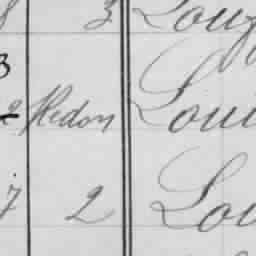 8 3 Lou
3
2 Hedon Loui
7 2 Lou